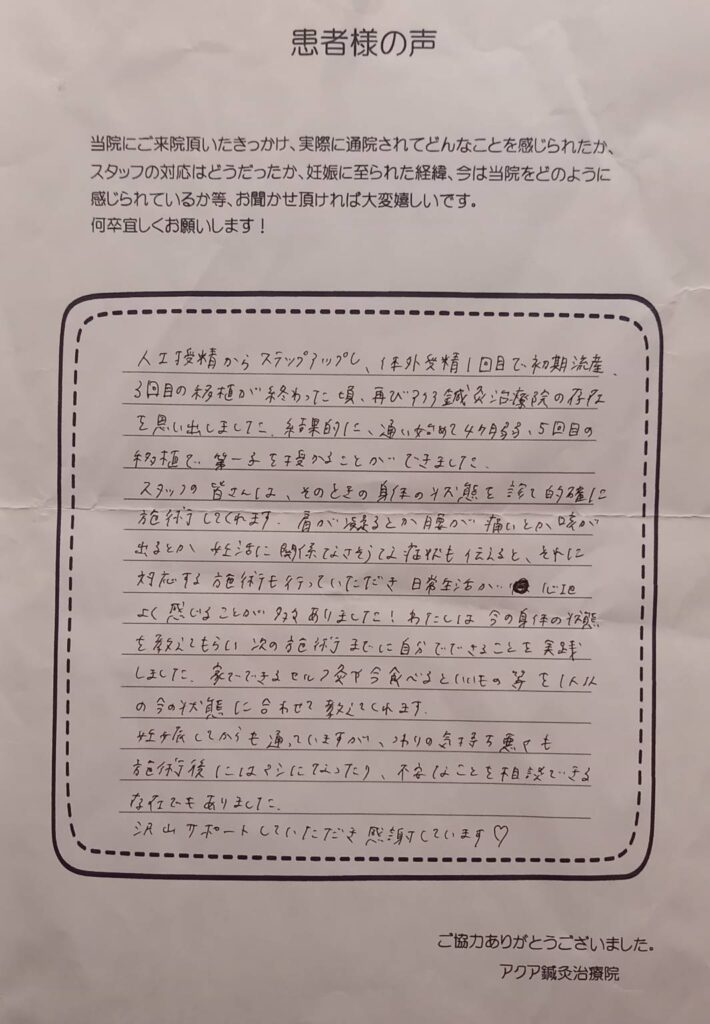 患者様の声
当院にご来院頂いたきっかけ、実際に通院されてどんなことを感じられたか、
スタッフの対応はどうだったか、妊娠に至られた経緯、今は当院をどのように
感じられているか等、お聞かせ頂ければ大変嬉しいです。
何卒宜しくお願いします！
人工授精からステップアップし、体外受精1回目で初期流産、
3回目の移植が終わった頃、再びアクア鍼灸治療院の存在
を思い出しました。結果的に、通い始めて4ヶ月弱、5回目の
移植で第一子を授かることができました。
スタッフの皆さんは、そのときの身体の状態を診て的確に
施術してくれます。肩が凝るとか腰が痛いとか咳が
出るとか妊活に関係なさそうな症状も伝えると、それに
対応する施術も行っていただき日常生活が心地
よく感じることが多々ありました！わたしは今の身体の状態
を教えてもらい次の施術までに自分でできることを実践
しました。家でできるセルフ灸や今食べるといいもの等を1人1人
の今の状態に合わせて教えてくれます。
妊娠してからも通っていますが、つわりの気持ち悪さも
施術後にはマシになったり、不安なことを相談できる
存在でもありました。
沢山サポートしていただき感謝しています♡
ご協力ありがとうございました。
アクア鍼灸治療院